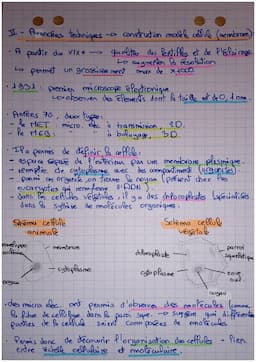 II - Avancées techniques → construction modèle cellule (membrane)
- A partir du XIXe → qualités des lentilles et de l'éclairage
↳ augmenter la résolution
↳ permet un grossissement max de x1000
- 1931 : premier microscope électronique
↳ observer des éléments dont la taille est
Années 70 : deux types :
- le MET : micro. élec. à transmission. 2D.
- le MEB : " " " à balayage. 3D.
- Ils permis de définir la cellule :
- espace séparé de l'extérieur par une membrane plasmique.
- remplie de cytoplasme avec des compartiments (organites).
- parmi ces organites, on trouve le noyau (présent chez les
eucaryotes) qui renferme l'ADN
- dans les cellules végétales, il y a des chloroplastes spécialisés
dans la synthèse de molécules organiques.
Schéma cellule animale
Schéma cellule végétale
membrane
cytoplasme
noyau
chloroplaste
paroi
cytoplasme
noyau
- des micro. élec. ont permis d'observer des molécules (comme
la fibre de cellulose dans la paroi → suggère que différentes
parties de la cellule soient composées de molécules.
- Permis donc de découvrir l'organisation des cellules - lien
entre échelle cellulaire et moléculaire.